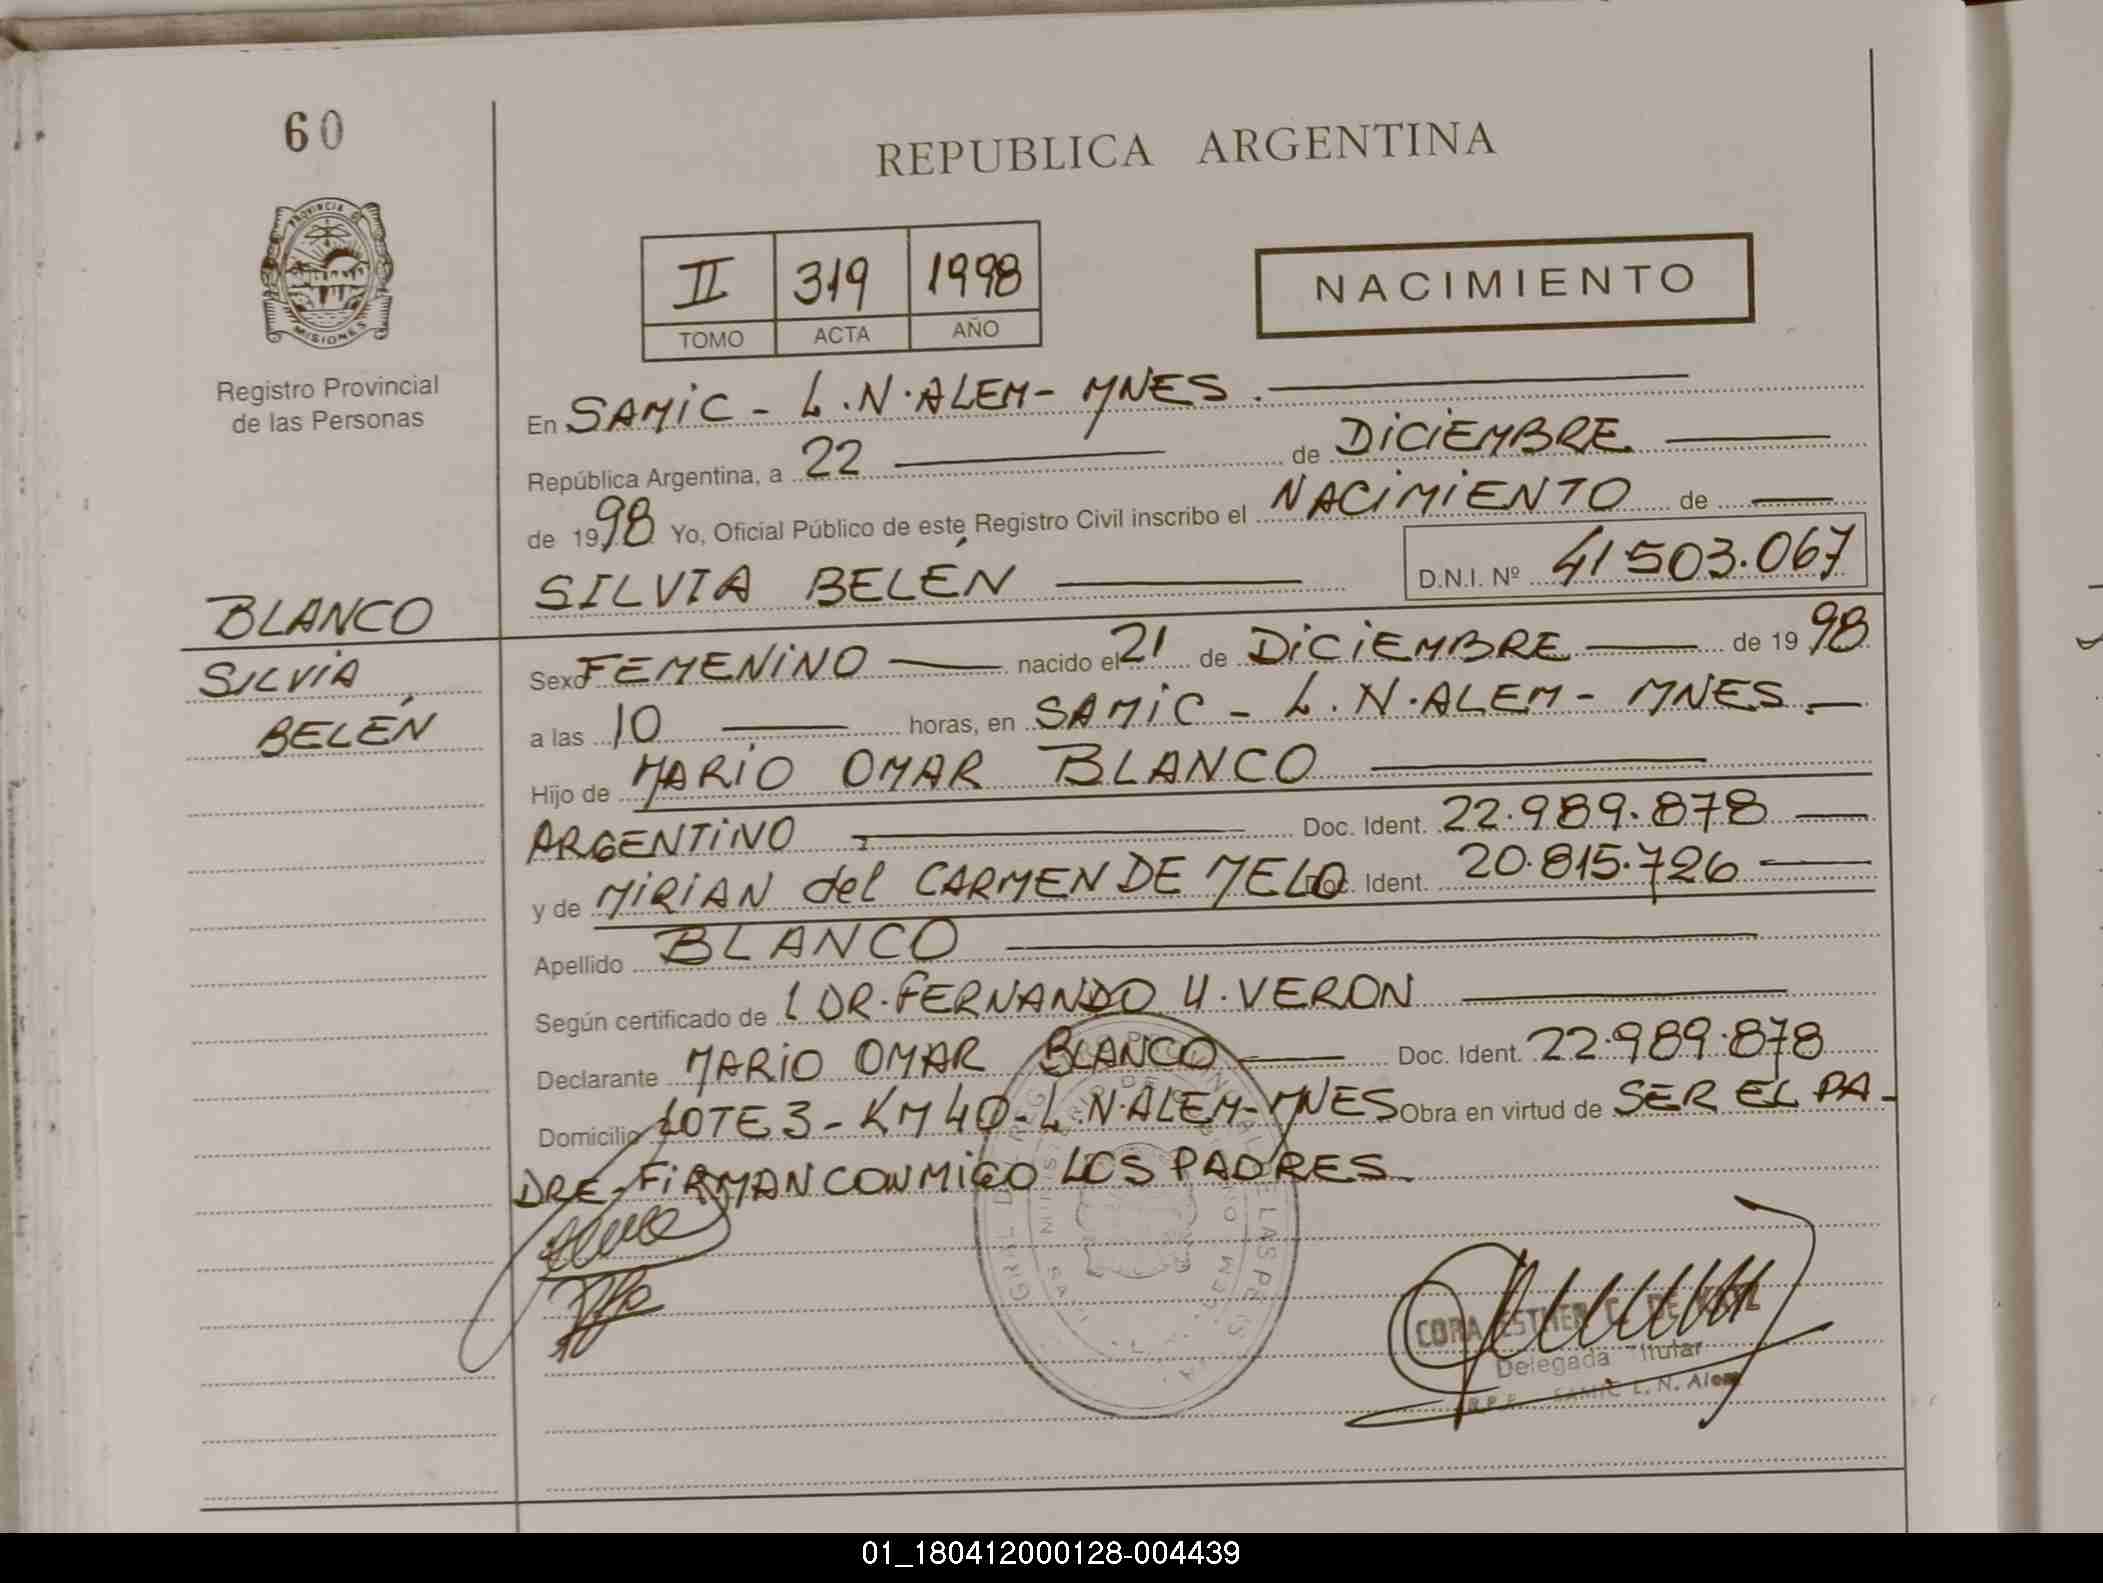 60
REPUBLICA ARGENTINA
PROVINCIA DE
MISIONES
Registro Provincial
de las Personas
II 319 1998
TOMO ACTA AÑO
NACIMIENTO
En SAMIC - L.N.ALEM - MNES.
República Argentina, a 22 de DICIEMBRE
de 1998 Yo, Oficial Público de este Registro Civil inscribo el NACIMIENTO de
SILVIA BELÉN D.N.I. Nº 41503.067
BLANCO
SILVIA
BELÉN
Sexo FEMENINO nacido el 21 de DICIEMBRE de 1998
a las 10 horas, en SAMIC - L.N.ALEM - MNES.
Hijo de MARIO OMAR BLANCO
ARGENTINO Doc. Ident. 22.989.878
y de MIRIAN del CARMEN DE MELO Doc. Ident. 20.815.726
Apellido BLANCO
Según certificado de DR. FERNANDO H. VERON
Declarante MARIO OMAR BLANCO Doc. Ident. 22.989.878
Domicilio LOTE 3 - KM 40 - L.N.ALEM - MNES Obra en virtud de SER EL PA-
DRE - FIRMAN CONMIGO LOS PADRES.
CORA ESTHER
Delegada Titular
SAMIC L. N. Alem
01_180412000128-004439